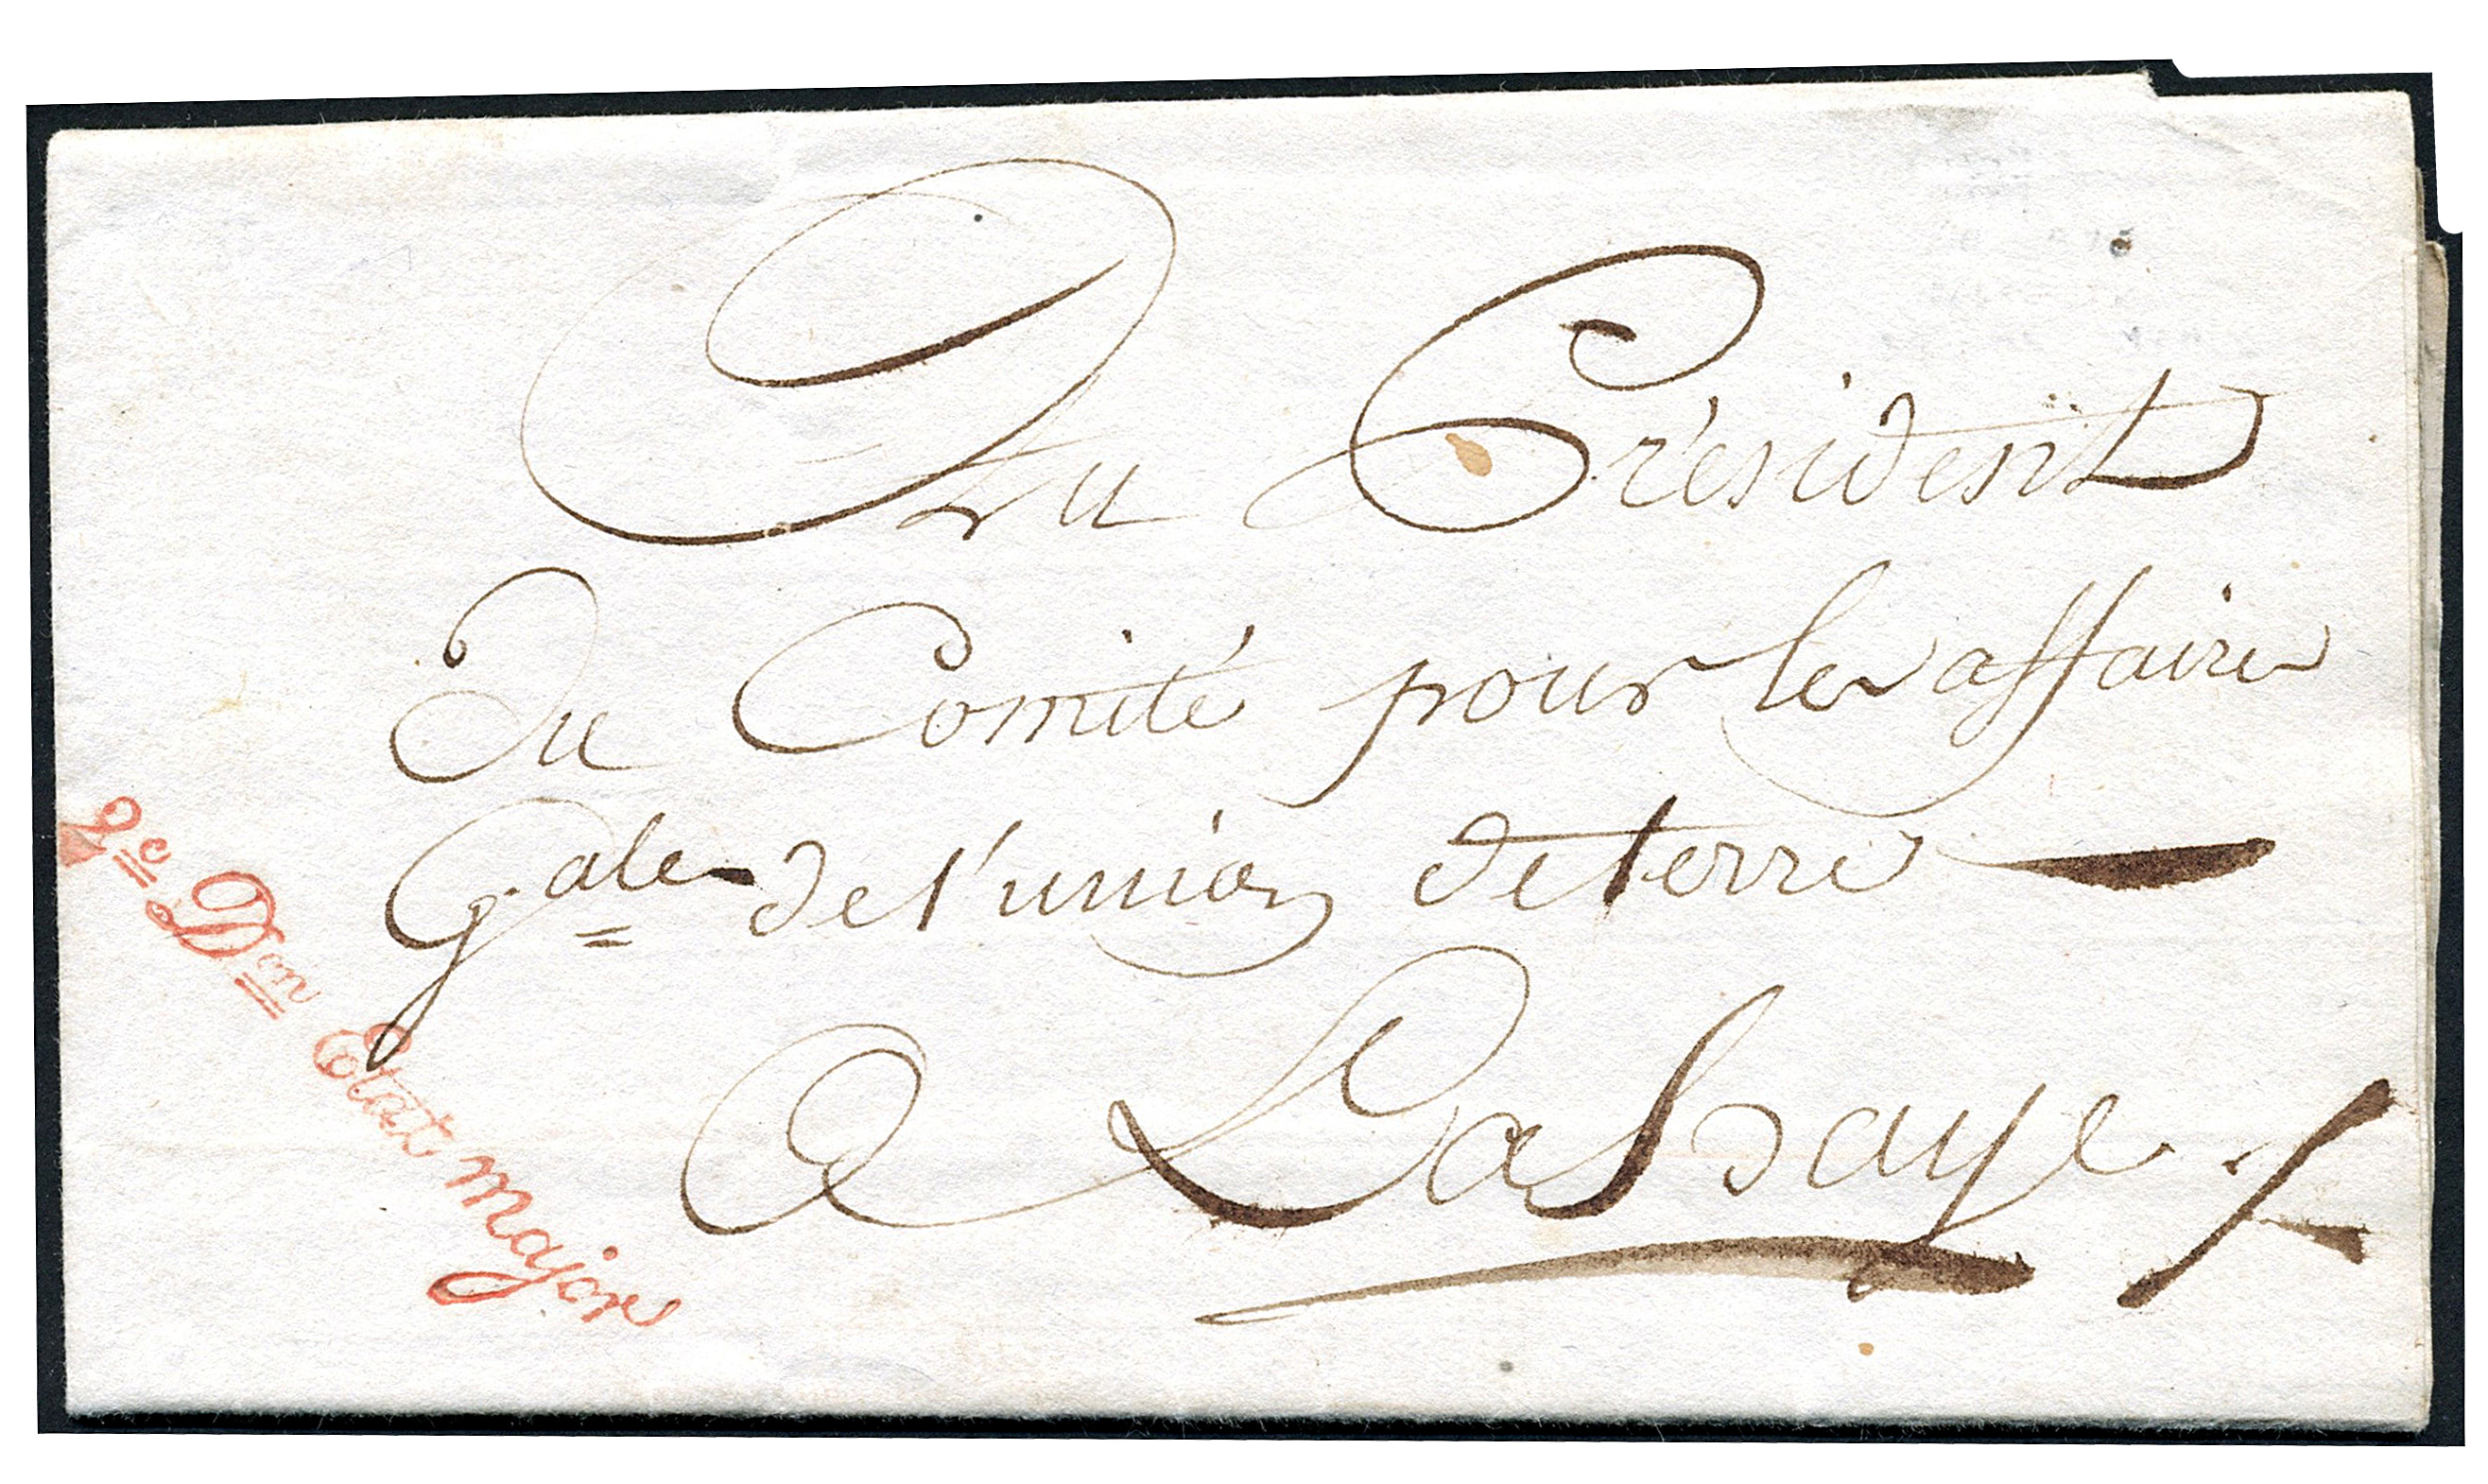 Au Président
du Comité pour les affaires
G.ales de l'union de terre
a Lahaye.
2e Don Etat major